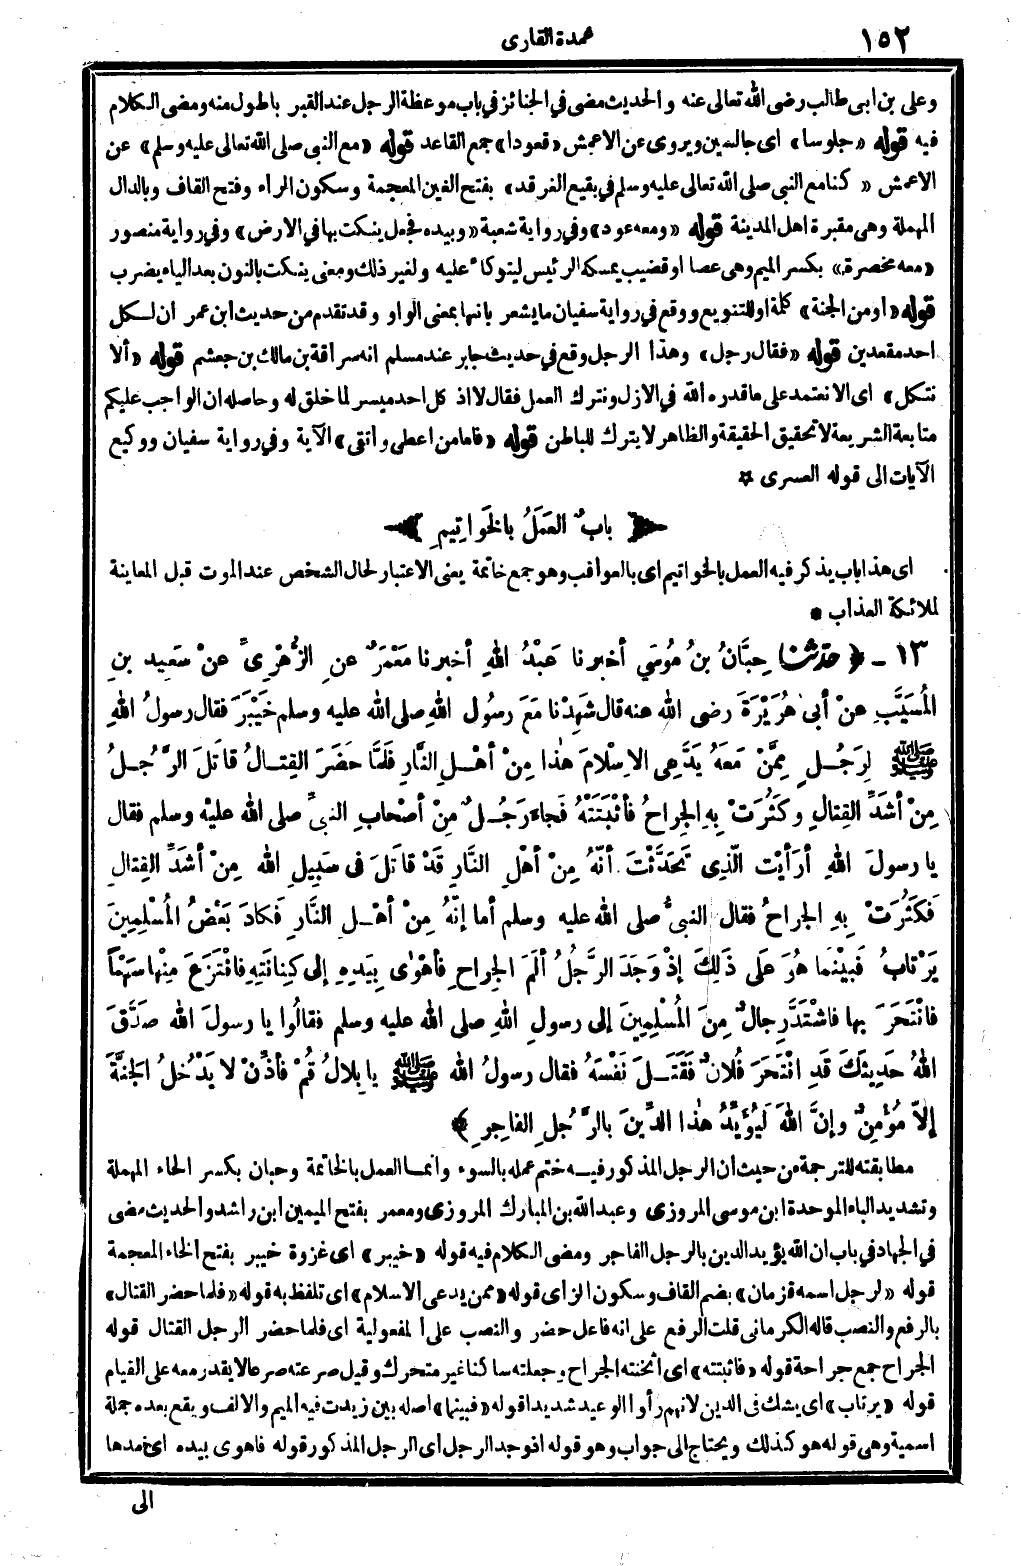 ١٥٢
عمدة القارى
وعلى بن ابى طالب رضى الله تعالى عنه والحديث مضى في الجنائز في باب موعظة الرجل عند القبر باطول منه ومضى الكلام
فيه قوله «جلوسا» اى جالسين ويروى عن الاعمش «قعودا» جمع القاعد قوله «مع النبى صلى الله تعالى عليه وسلم» عن
الاعمش «كنا مع النبى صلى الله تعالى عليه وسلم في بقيع الغرقد» بفتح الغين المعجمة وسكون الراء وفتح القاف وبالدال
المهملة وهى مقبرة اهل المدينة قوله «ومعه عود» وفي رواية شعبة «وبيده فجعل ينكت بها في الارض» وفي رواية منصور
«معه مخصرة» بكسر الميم وهى عصا او قضيب يمسكه الرئيس ليتوكأ عليه ولغير ذلك ومعنى ينكت بالنون بعد الياء يضرب
قوله «او من الجنة» كلمة او للتنويع ووقع في رواية سفيان ما يشعر بانها بمعنى الواو وقد تقدم من حديث ابن عمر ان لكل
احد مقعدين قوله «فقال رجل» وهذا الرجل وقع في حديث جابر عند مسلم انه سراقة بن مالك بن جعشم قوله «ألا
نتكل» اى الا نعتمد على ما قدره الله في الازل ونترك العمل فقال لا اذ كل احد ميسر لما خلق له وحاصله ان الواجب عليكم
متابعة الشريعة لا تحقيق الحقيقة والظاهر لا يترك للباطن قوله «فاما من اعطى واتقى» الآية وفي رواية سفيان ووكيع
الآيات الى قوله العسرى *
﴿ بابٌ العَمَلُ بالخَوَاتِيمِ ﴾
اى هذا باب يذكر فيه العمل بالخواتيم اى بالعواقب وهو جمع خاتمة يعنى الاعتبار لحال الشخص عند الموت قبل المعاينة
لملائكة العذاب *
١٣ ـ ﴿ حدثنا حِبَّانُ بنُ مُوسَي أخبرنا عَبْدُ اللهِ أخبرنا مَعْمَرٌ عنِ الزُّهْرِيِّ عنْ سَعِيدِ بنِ
المُسَيَّبِ عنْ أبى هُرَيْرَةَ رضى الله عنه قال شَهِدْنا مَعَ رسُولِ اللهِ صلى الله عليه وسلم خَيْبَرَ فقال رسولُ اللهِ
ﷺ لِرَجُلٍ مِمَّنْ مَعَهُ يَدَّعِى الاِسْلَامَ هٰذا مِنْ أهْلِ النَّارِ فَلَمَّا حضَرَ القِتالُ قاتَلَ الرَّجُلُ
مِنْ أشَدِّ القِتالِ وكَثُرَتْ بِهِ الجِراحُ فأثْبَتَتْهُ فَجاءَ رَجُلٌ مِنْ أصْحابِ النبىِّ صلى الله عليْه وسلم فقال
يا رسولَ اللهِ أرَأيْتَ الَّذِى تَحَدَّثْتَ أنَّهُ مِنْ أهْلِ النَّارِ قَدْ قاتَلَ فى سَبِيلِ الله مِنْ أشَدِّ القِتالِ
فَكَثُرَتْ بِهِ الجِراحُ فقال النبىُّ صلى الله عليه وسلم أما إنَّهُ مِنْ أهْلِ النَّارِ فَكادَ بَعْضُ المُسْلِمِينَ
يَرْتابُ فَبينَما هُوَ عَلَى ذَلِكَ إذْ وَجَدَ الرَّجُلُ ألَمَ الجِراحِ فأهْوٰى بِيَدِهِ إلى كِنانَتِهِ فانْتَزَعَ مِنْها سَهْمًا
فانْتَحَرَ بها فاشْتَدَّ رِجالٌ مِنَ المُسْلِمِينَ إلى رسولِ اللهِ صلى الله عليه وسلم فقالُوا يا رسولَ الله صَدَّقَ
اللهُ حَدِيثَكَ قَدِ انْتَحَرَ فُلانٌ فَقَتَلَ نَفْسَهُ فقال رسولُ الله ﷺ يا بِلالُ قُمْ فأذِّنْ لا يَدْخُلُ الجَنَّةَ
إلّا مُؤْمِنٌ وإنَّ اللهَ لَيُؤَيِّدُ هٰذا الدِّينَ بالرَّجُلِ الفاجِرِ ﴾
مطابقته للترجمة من حيث أن الرجل المذكور فيه ختم عمله بالسوء وانما العمل بالخاتمة وحبان بكسر الحاء المهملة
وتشديد الباء الموحدة ابن موسى المروزى وعبد الله بن المبارك المروزى ومعمر بفتح الميمين ابن راشد والحديث مضى
في الجهاد في باب ان الله يؤيد الدين بالرجل الفاجر ومضى الكلام فيه قوله «خيبر» اى غزوة خيبر بفتح الخاء المعجمة
قوله «لرجل اسمه قزمان» بضم القاف وسكون الزاى قوله «ممن يدعى الاسلام» اى تلفظ به قوله «فلما حضر القتال»
بالرفع والنصب قاله الكرمانى قلت الرفع على انه فاعل حضر والنصب على المفعولية اى فلما حضر الرجل القتال قوله
الجراح جمع جراحة قوله «فاثبتته» اى اثخنته الجراح وجعلته ساكنا غير متحرك وقيل صرعته صرعا لا يقدر معه على القيام
قوله «يرتاب» اى يشك فى الدين لانهم رأوا الوعيد شديدا قوله «فبينما» اصله بين زيدت فيه الميم والالف ويقع بعده جملة
اسمية وهى قوله هو كذلك ويحتاج الى جواب وهو قوله اذ وجد الرجل اى الرجل المذكور قوله فاهوى بيده اى مدها
الى